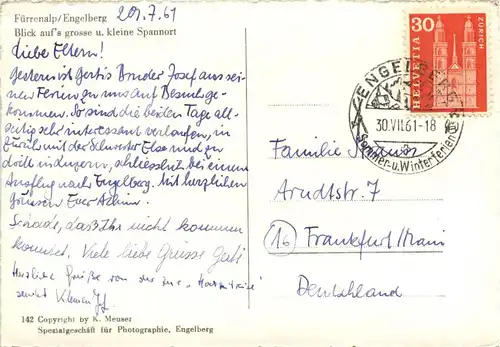 Fürrenalp/Engelberg
Blick auf's grosse u. kleine Spannort
29.7.61
Liebe Eltern!
Gestern ist Gertis Bruder Josef aus sei-
nen Ferien zu uns auf Besuch ge-
kommen. So sind die beiden Tage all-
seitig sehr interessant verlaufen, in
Zürich mit der Schwester Else und zu
dritt in Luzern, schliesslich bei einem
Ausflug nach Engelberg. Mit herzlichen
Grüssen Euer Achim.
Schade, daß Ihr nicht kommen
konntet. Viele liebe Grüsse Gerti
Herzliche Grüße von der
sendet
142 Copyright by K. Meuser
Spezialgeschäft für Photographie, Engelberg
30
HELVETIA
ZÜRICH
ENGELBERG
30.VII.61-18
Sommer-u.Winterferien
Familie
Arndtstr. 7
(16) Frankfurt/Main
Deutschland